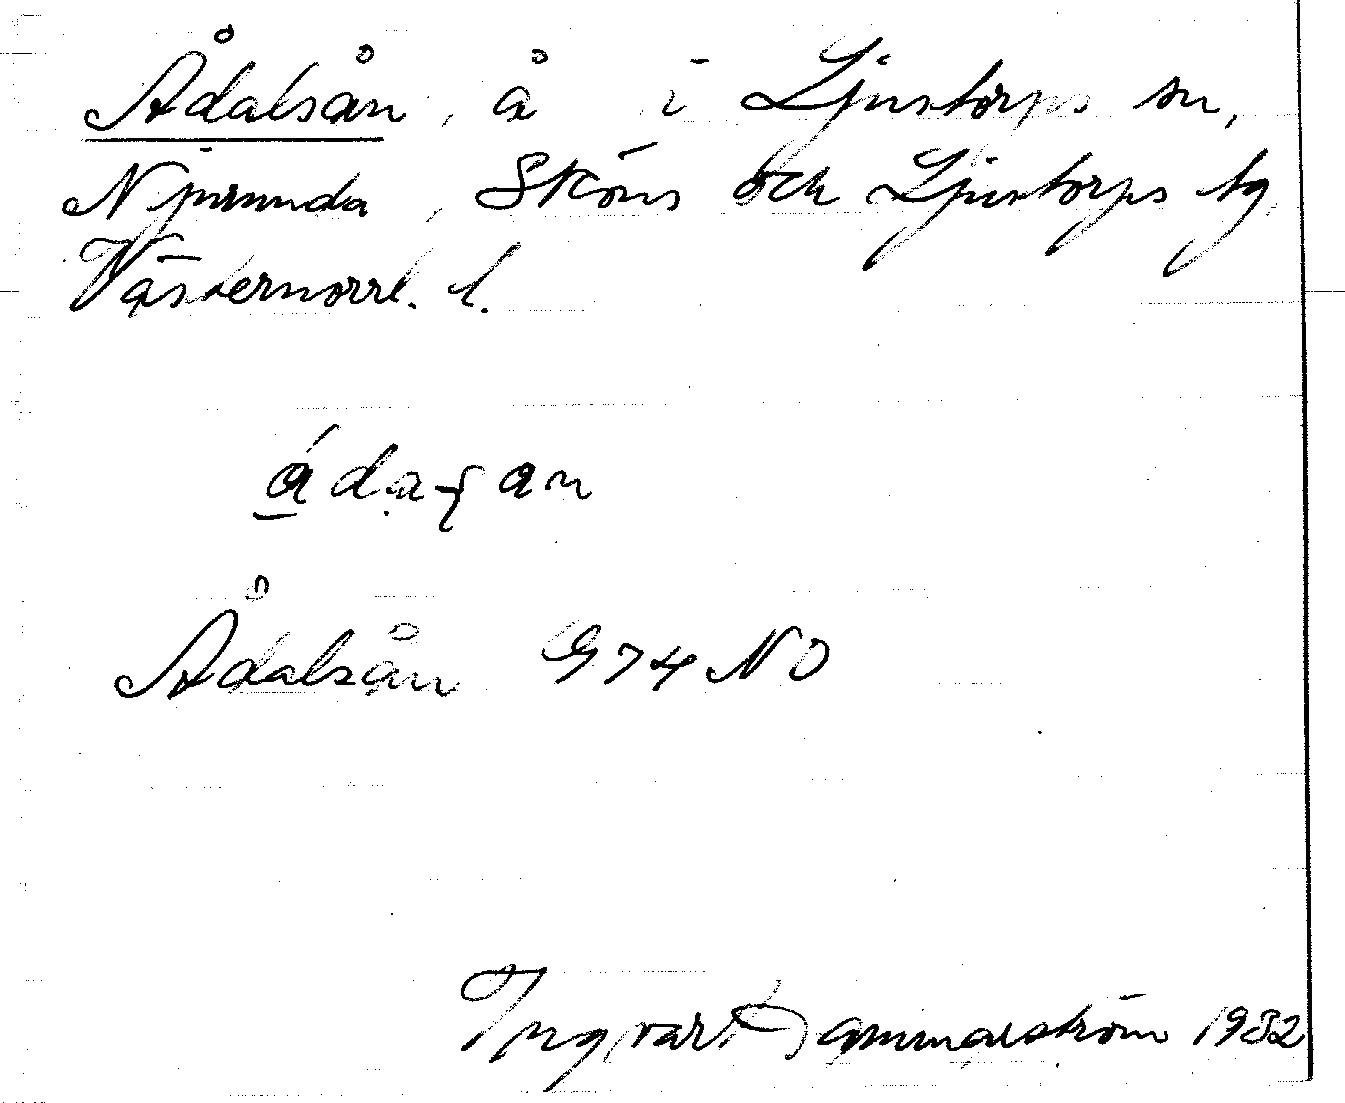 Ådalsån, å i Ljustorps sn,
Njurunda, Sköns och Ljustorps tg
Västernorrl. l.
Ådalsån 974 NO
Ingvar Hammarström 1932